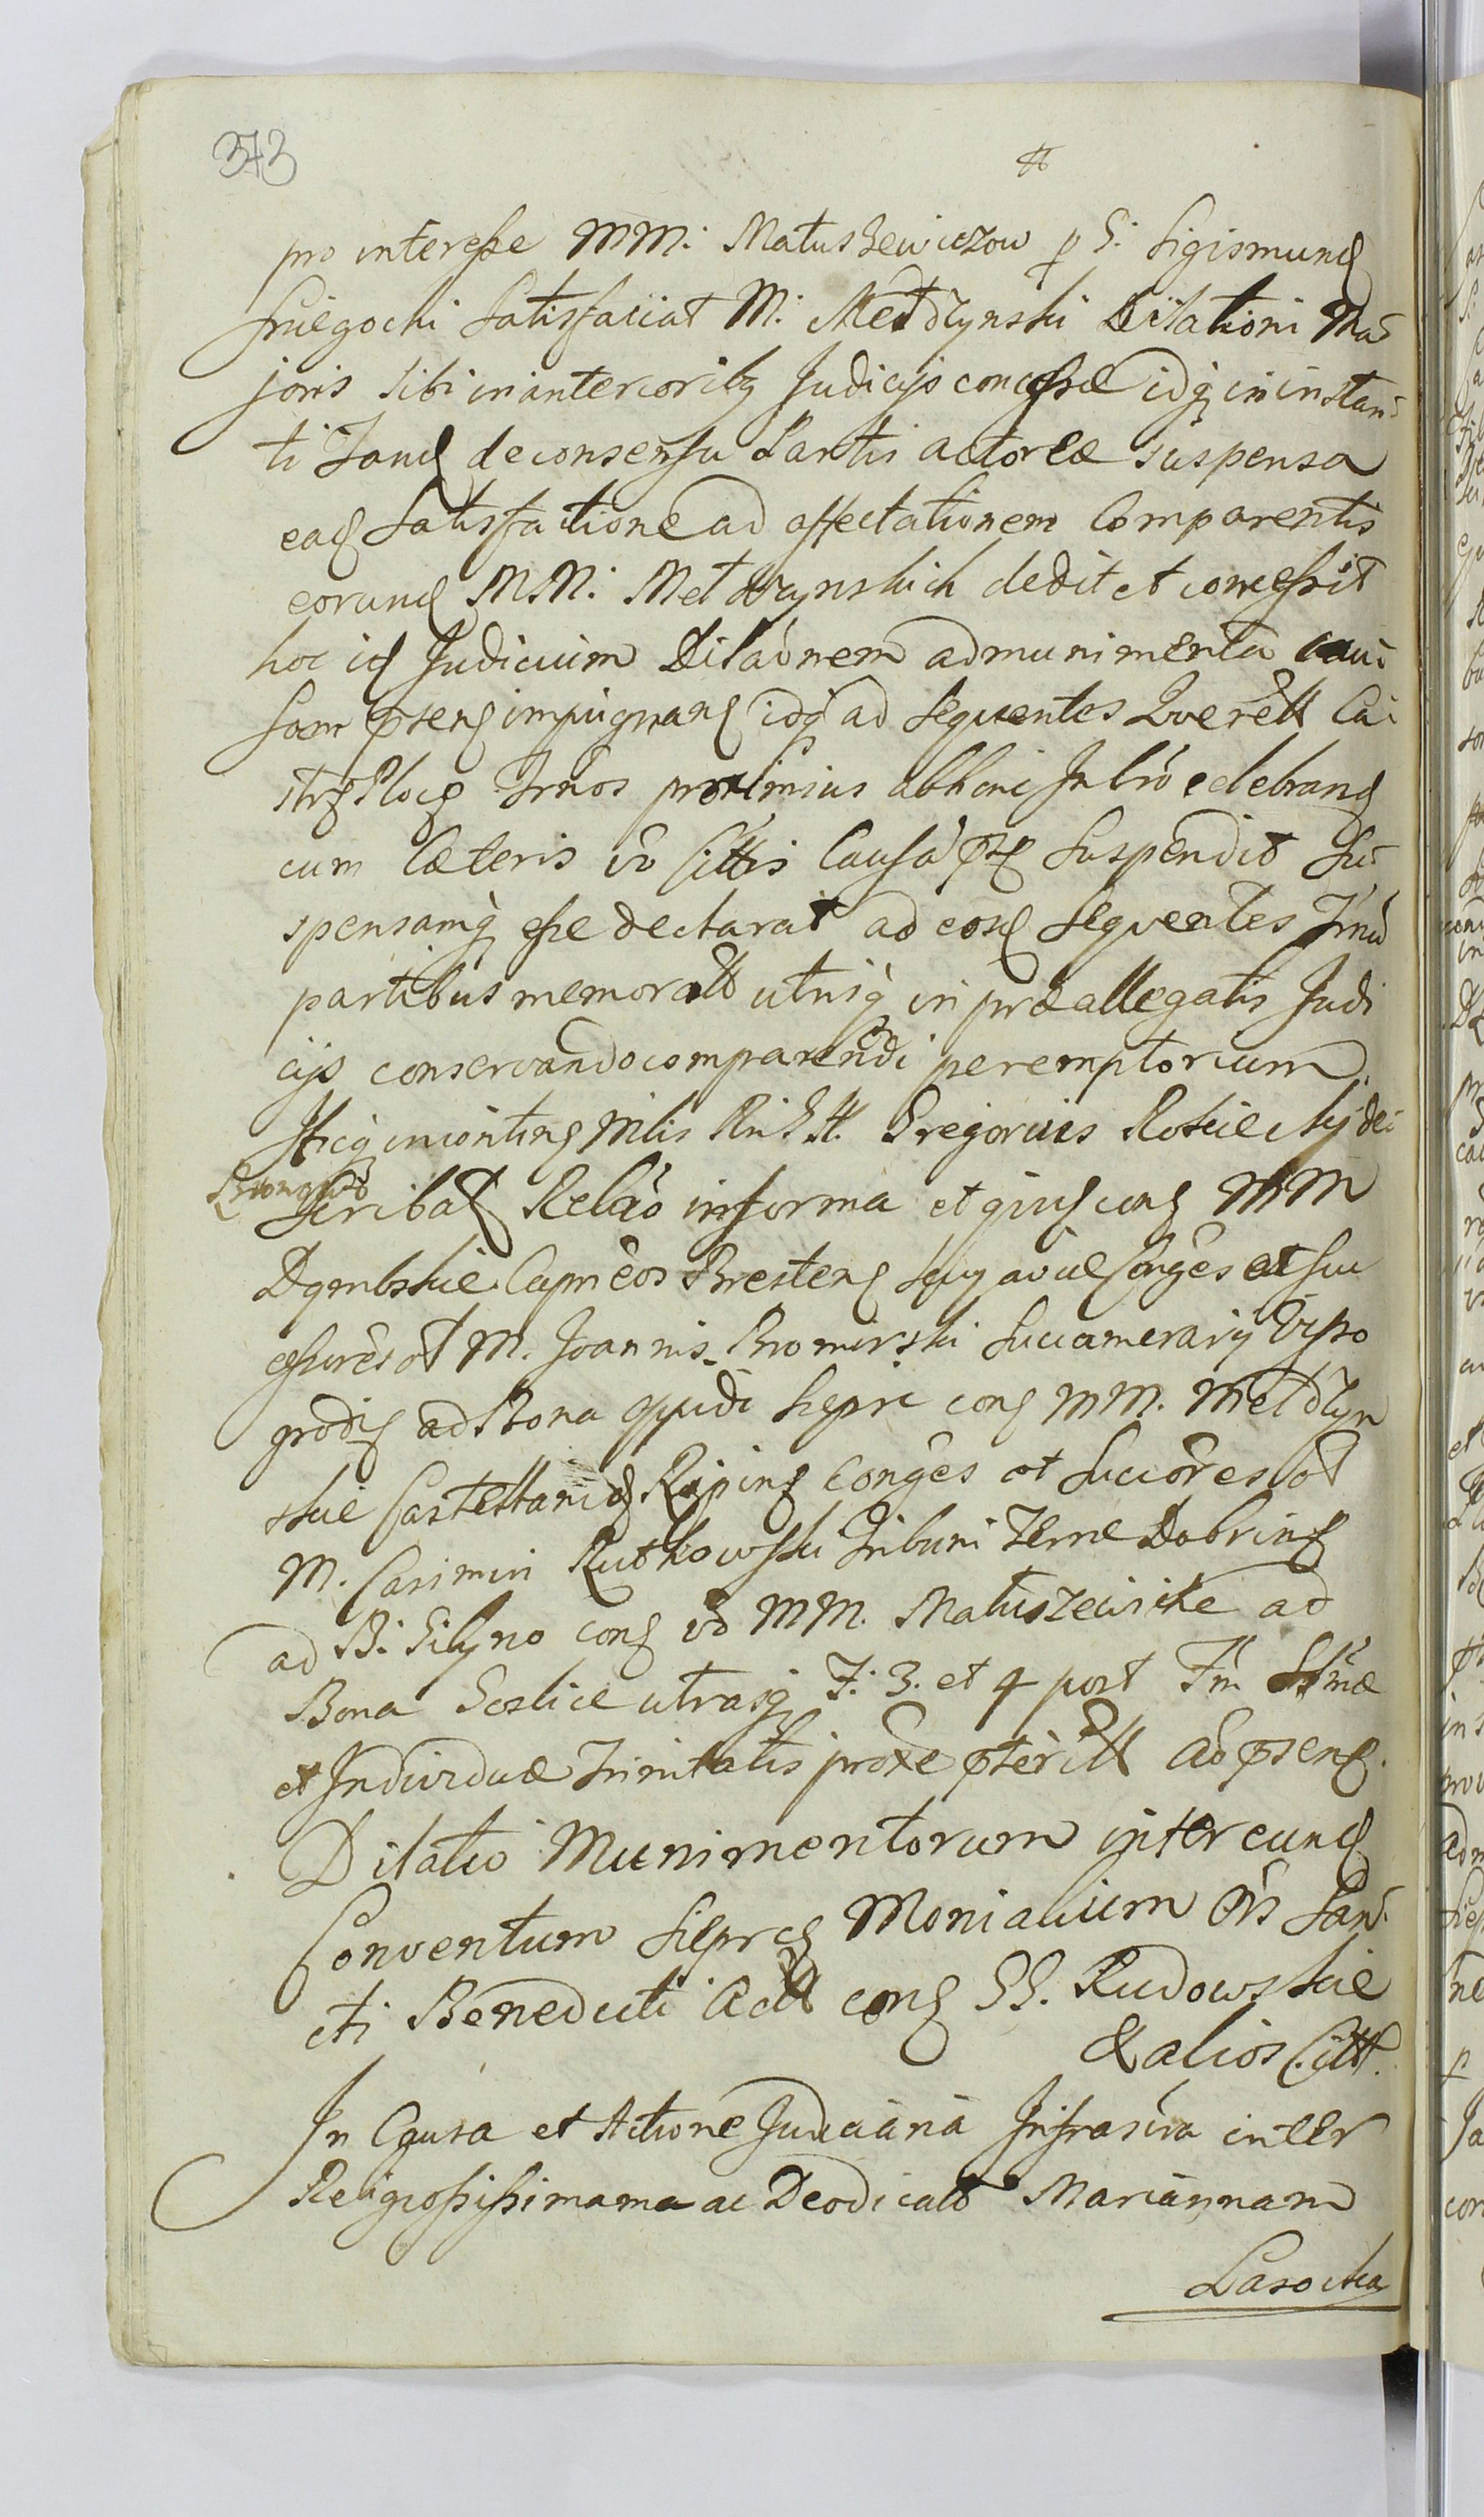 373
pro interesse MM: Matuszewiczow p S: Sigismund
Sniegocki Satisfaciat M: Metdzynski Dilationi Ma-
joris Sibi in anterioribq Judicijs concessae idq in instan-
ti Tand de consensu Partis actoreae suspensa
ead Satisfactione ad affectationem Comparentis
eorund MM: Metdzynskich dedit et concessit
hoc id Judicium Dilaõnem ad munimenta cau-
sam psens impugnans idq ad Sequentes Querell Ca-
str Ploc Trnos proximius abhinc In Crõ celebrand
cum Caeteris vo Cittis Causã ps Suspendit Su-
spensamq esse declarat ad eosd Sequentes Trnos
partibus memoratt utrisq in praeallegatis Judi
cijs conservando comparendi peremptorium
Hicq in continens Mlis Rni H. Gregorius Kosciecky de
Scribat Relaõ in forma et qui cons MM
Dąmbskie Capneos Brestens Suc ac ul Conges et Suc
cessores ol M. Joannis Bromirski Succamerarij Wyszo
grodis ad Bona oppidi Siepre cons MM. Metdzyn
skie Castellanid Ripins Conges et Succõres ol
M. Casimiri Rutkowski Tribuni Terrae Dobrins
ad B: Gilyno cons vo MM. Matuszewickie ad
Bona Goslice utrasq F: 3. et 4 post Fm SSmae
et Individuae Trinitatis proxe pteritt ad psens.
Dilatio Munimentorum inter eund
Conventum Sieprcs Monialium Ors San-
cti Benedicti Act cons SS. Rudowskie
& alios Citt.
In Causa et Actione Judiciaria Infrascra inter
Religiosissimama ac Deodicatt Mariannam
Lasocka